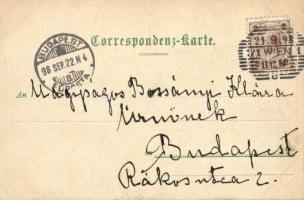 Correspondenz-Karte.
BUDAPEST
98 SEP. 22. N 4
POSTA
21.9.98
WIEN
An Nagyságos Bossányi Klára
Úrnőnek
Budapest
Rákosutca 2.